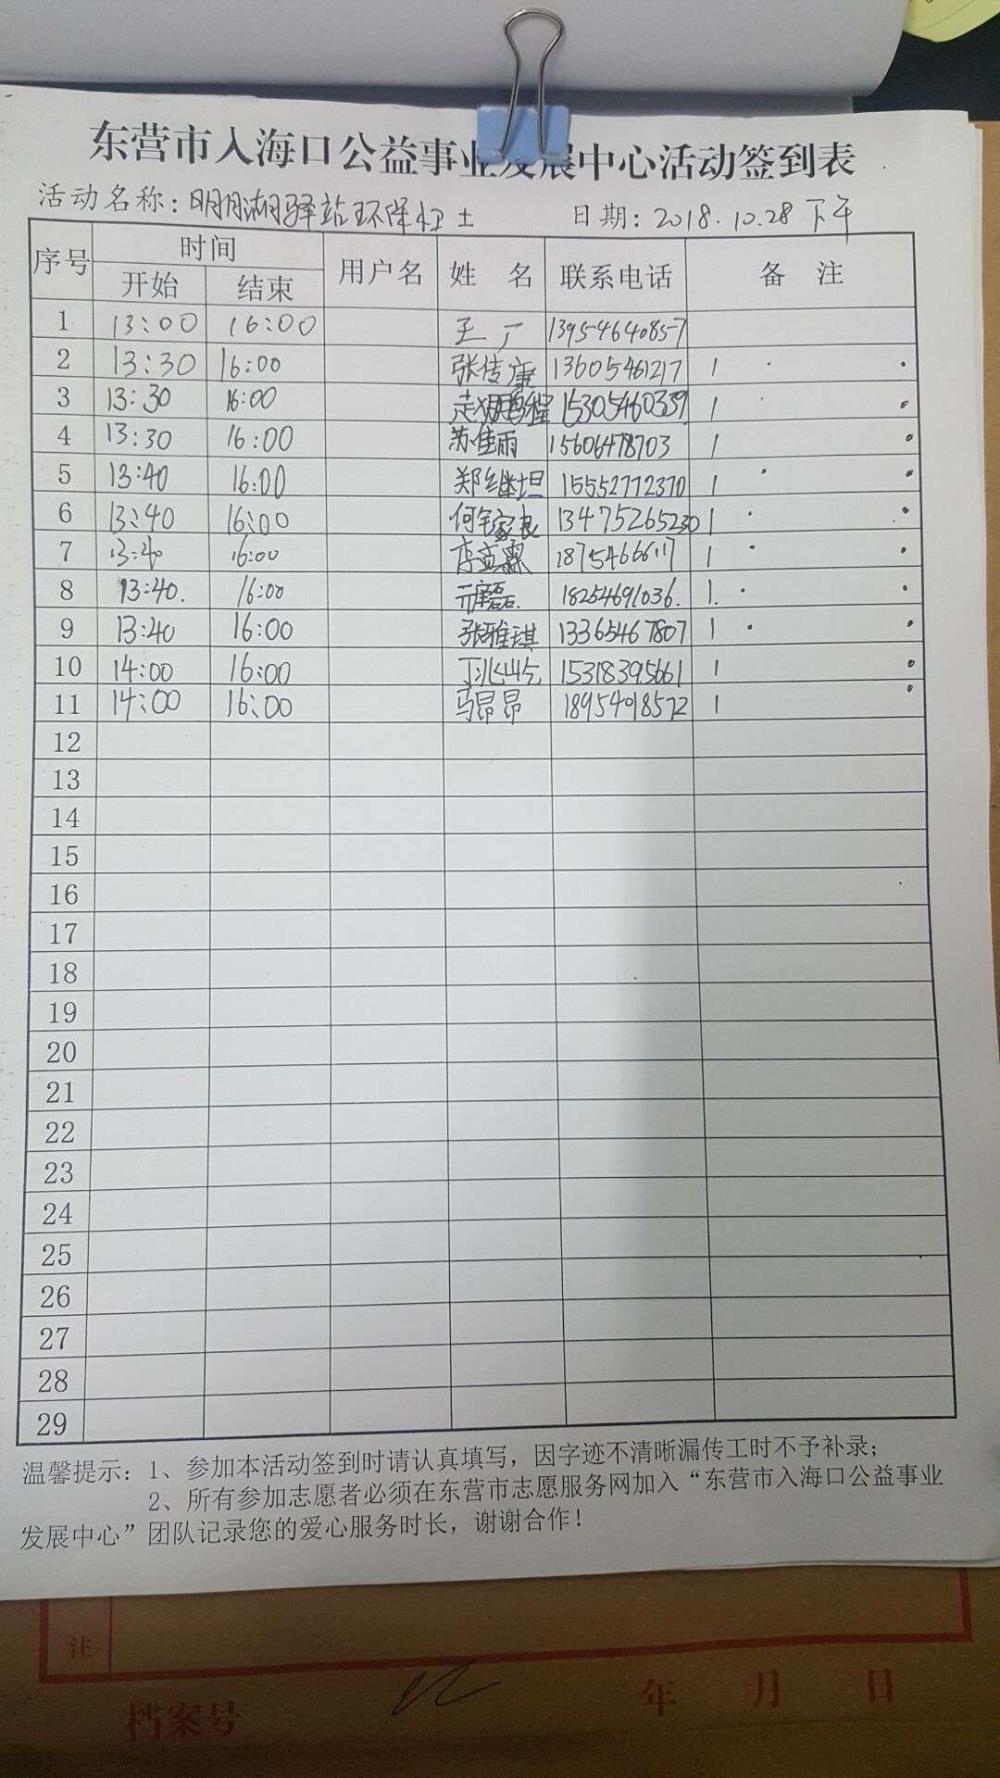 东营市入海口公益事业发展中心活动签到表
活动名称：明月湖驿站环保卫士 日期：2018.10.28下午
序号 时间 用户名 姓名 联系电话 备注
开始 结束
1 13:00 16:00 王广 13954640857
2 13:30 16:00 张传康 13605461217 1
3 13:30 16:00 15305460339 1
4 13:30 16:00 苏佳雨 15606478703 1
5 13:40 16:00 郑继坦 15552772370 1
6 13:40 16:00 13475265230 1
7 13:40 16:00 18754666117 1
8 13:40. 16:00 18254691036. 1.
9 13:40 16:00 张雅琪 13365467807 1
10 14:00 16:00 15318395661 1
11 14:00 16:00 马昂昂 18954018572 1
12
13
14
15
16
17
18
19
20
21
22
23
24
25
26
27
28
29
温馨提示：1、参加本活动签到时请认真填写，因字迹不清晰漏传工时不予补录；
2、所有参加志愿者必须在东营市志愿服务网加入“东营市入海口公益事业
发展中心”团队记录您的爱心服务时长，谢谢合作！
注
档案号 年 月 日